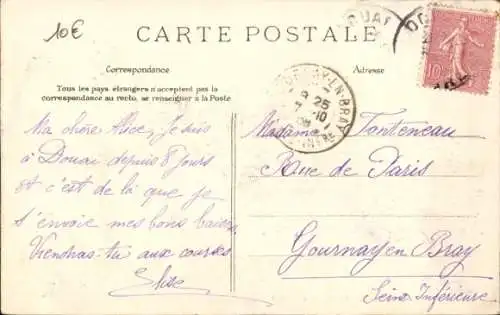 10€
CARTE POSTALE
Correspondance
Adresse
Tous les pays étrangers n'acceptent pas la
correspondance au recto, se renseigner à la Poste
Ma chère Alice, Je suis
à Douai depuis 8 jours
et c'est de là que je
t'envoie mes bons baisers
Viendras-tu aux courses
Elise
Madame Fanteneau
Rue de Paris
Gournay en Bray
Seine Inférieure
EN-BRAY
25
10
DOUAI
10